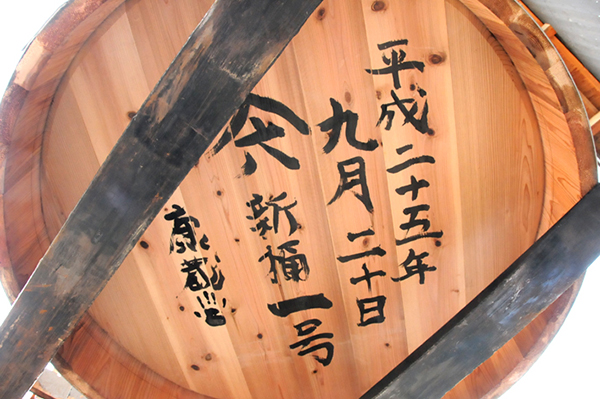 平成二十五年
九月二十日
六 新桶一号